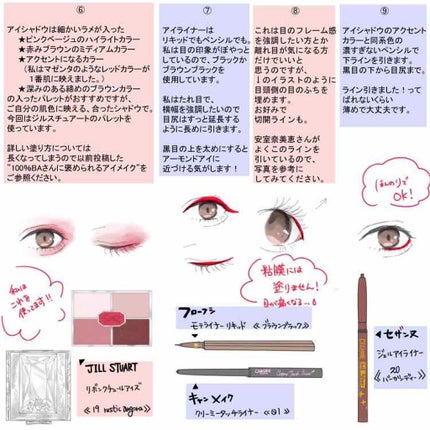 ⑥
アイシャドウは細かいラメが入った
★ピンクベージュのハイライトカラー
★赤みブラウンのミディアムカラー
★アクセントになるカラー
(私はマゼンタのようなレッドカラーが
1番肌に映えました。)
★深みのある締めのブラウンカラー
の入ったパレットがおすすめですが、
ご自分の肌色に映える、合ったシャドウで。
今回はジルスチュアートのパレットを
使っています。
詳しい塗り方については
長くなってしまうので以前投稿した
"100%BAさんに褒められるアイメイク"を
ご参照ください。
⑦
アイライナーは
リキッドでもペンシルでも。
私は目の印象がぼやっと
しているので、ブラックか
ブラウンブラックを
使用しています。
私はたれ目で、
横幅を強調したいので
目尻はすっと延長する
ように長めに引きます。
黒目の上を太めにすると
アーモンドアイに
近づける気がします!
⑧
これは目のフレーム感
を強調したい方とか
離れ目が気になる方
だけでいいと
思うのですが、
↓のイラストのように
目頭側の目のふちを
埋めます。
お好みで
切開ラインも。
安室奈美恵さんが
よくこのラインを
引いているので、
写真を参考に
してみてください。
⑨
アイシャドウのアクセント
カラーと同系色の
濃すぎないペンシルで
下ラインを引きます。
黒目の下から目尻まで。
ライン引きました!って
ばれないくらい
薄めで大丈夫です。
ほんのりで
OK!
粘膜には
塗りません!
目が痛くなる…
私は
これを
使ってます!!
JILL STUART
リボンクチュールアイズ
《19 rustic angora》
フローフシ
モテライナー リキッド 《ブラウンブラック》
キャンメイク
クリーミータッチライナー 《01》
セザンヌ
ジェルアイライナー
《20
バーガンディー》